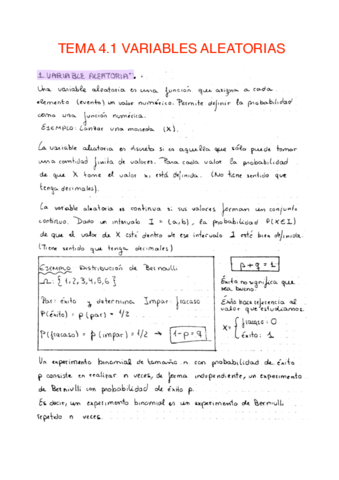 TEMA 4.1 VARIABLES ALEATORIAS
1. VARIABLE ALEATORIA.
Una variable aleatoria es una función que asigna a cada
elemento (evento) un valor numérico. Permite definir la probabilidad
como una función numérica.
EJEMPLO: Lanzar una moneda (X).
La variable aleatoria es discreta si es aquella que sólo puede tomar
una cantidad finita de valores. Para cada valor la probabilidad
de que X tome el valor xi está definida. (No tiene sentido que
tenga decimales).
La variable aleatoria es continua si sus valores forman un conjunto
continuo. Dado un intervalo I = (a,b), la probabilidad P(X∈I)
de que el valor de X esté dentro de ese intervalo I está bien definida.
(Tiene sentido que tenga decimales)
EJEMPLO Distribución de Bernoulli
Ω: {1,2,3,4,5,6}
Par: éxito y determina Impar: fracaso
P(éxito) = p (par) = 1/2
P(fracaso) = p (impar) = 1/2 → 1-p = q
p + q = 1
Éxito no significa que
sea bueno.
Éxito hace referencia al
valor que estudiamos.
X = { fracaso: 0
éxito: 1
Un experimento binomial de tamaño n con probabilidad de éxito
p consiste en realizar n veces, de forma independiente, un experimento
de Bernoulli con probabilidad de éxito p.
Es decir, un experimento binomial es un experimento de Bernoulli
repetido n veces.